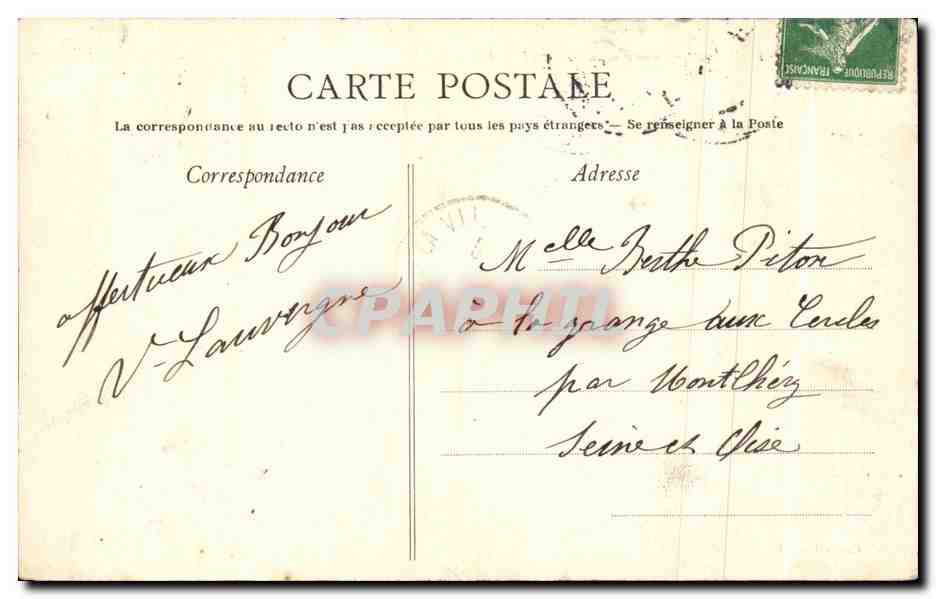 REPUBLIQUE FRANÇAISE
CARTE POSTALE
La correspondance au recto n'est pas acceptée par tous les pays étrangers — Se renseigner à la Poste
Correspondance
affectueux Bonjour
V- Lauvergne
Adresse
Melle Berthe Piton
à la grange aux Cercles
par Montlhéry
Seine et Oise
CPAPHIL